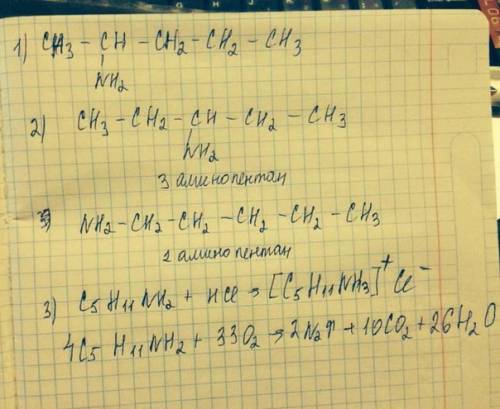 1) CH3 – CH – CH2 – CH2 – CH3
NH2
2) CH3 – CH2 – CH – CH2 – CH3
NH2
3 аминопентан
NH2 – CH2 – CH2 – CH2 – CH2 – CH3
1 аминопентан
3) C5H11NH2 + HCl → [C5H11NH3]⁺Cl⁻
4C5H11NH2 + 33O2 → 2N2↑ + 10CO2 + 26H2O